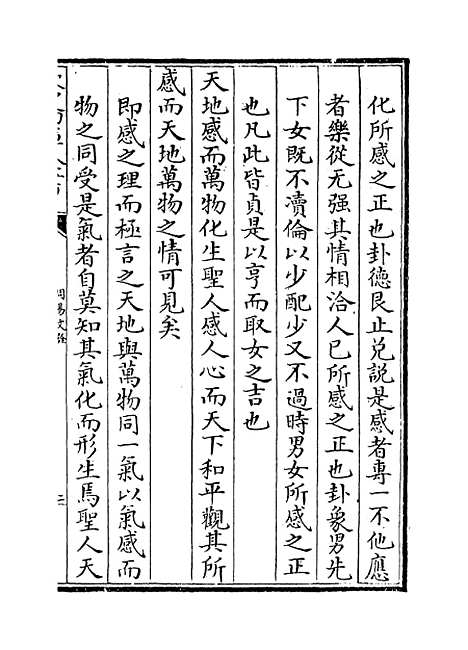 化所感之正也卦德艮止兑說是感者專一不他應
者樂從无强其情相洽人已所感之正也卦象男先
下女既不瀆倫以少配少又不過時男女所感之正
也凡此皆貞是以亨而取女之吉也
天地感而萬物化生聖人感人心而天下和平觀其所
感而天地萬物之情可見矣
即感之理而極言之天地與萬物同一氣以氣感而
物之同受是氣者自莫知其氣化而形生焉聖人天